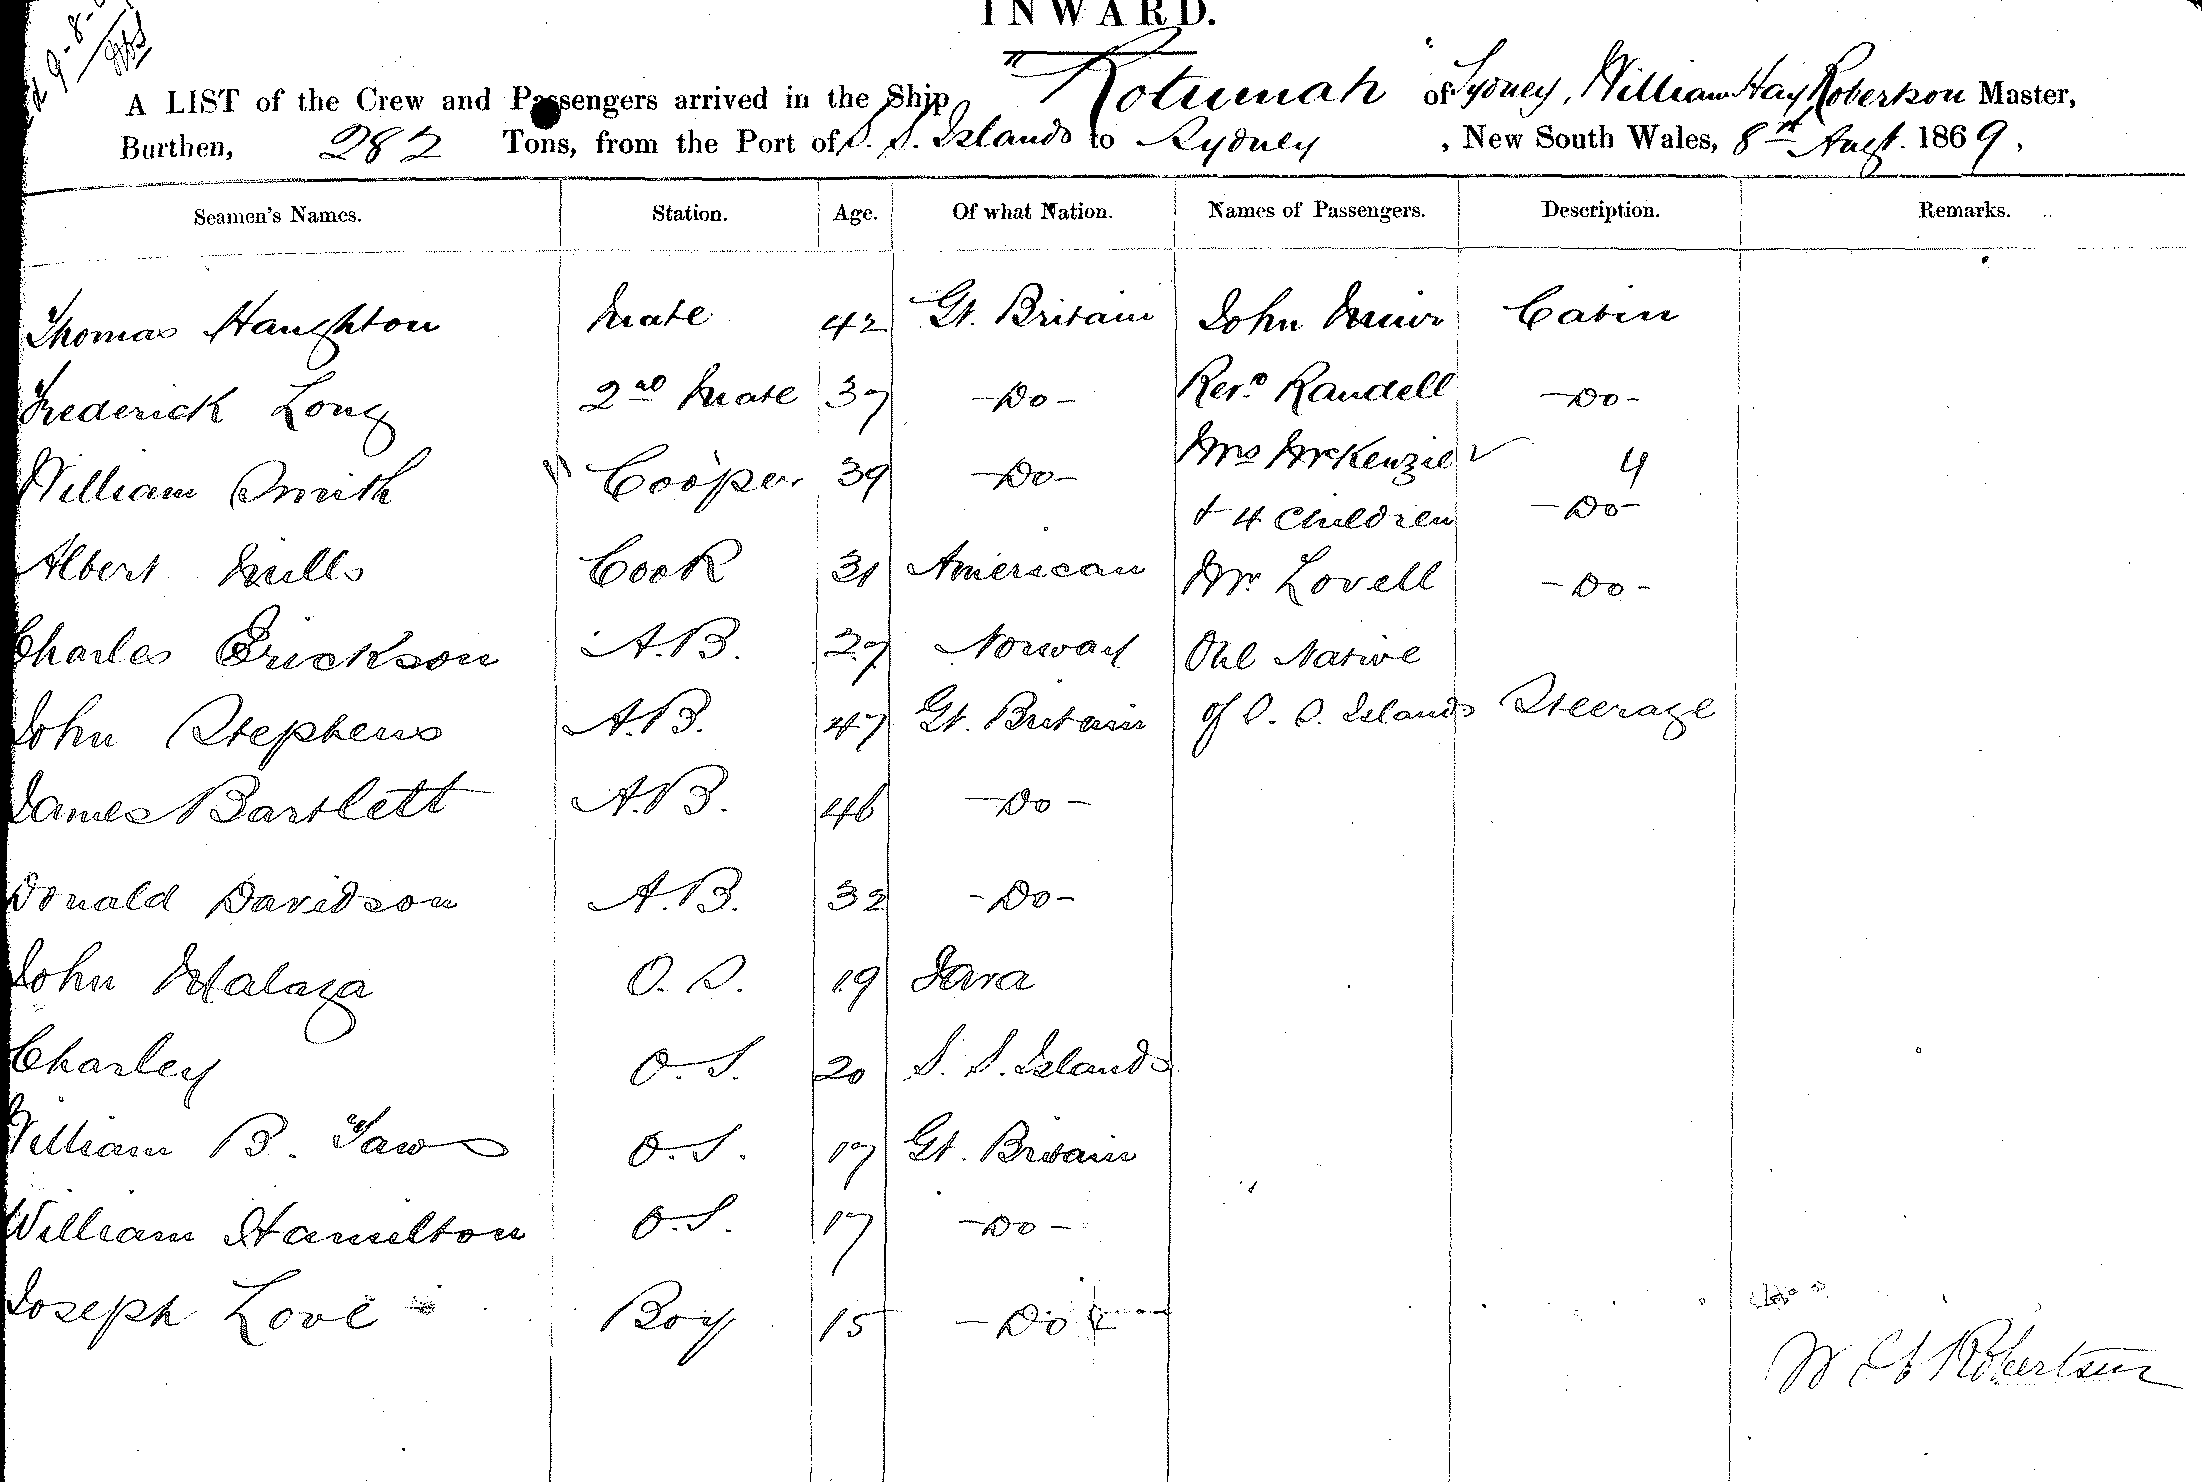 INWARD.
9-8-
A LIST of the Crew and Passengers arrived in the Ship "Rotumah" of Sydney, William Hay Robertson Master,
Burthen, 282 Tons, from the Port of S. S. Islands to Sydney, New South Wales, 8th Augt. 1869.
Seamen's Names. Station. Age. Of what Nation. Names of Passengers. Description. Remarks.
Thomas Haughton Mate 42 Gt. Britain John Muir Cabin
Frederick Long 2nd Mate 37 -Do- Revd. Randell -Do-
William Smith Cooper 39 -Do- Mrs McKenzie 4
+ 4 Children -Do-
Albert Mills Cook 31 American Mr. Lovell -Do-
Charles Erickson A.B. 27 Norway One Native
John Stephens A.B. 47 Gt. Britain of S. S. Islands Steerage
James Bartlett A.B. 46 -Do-
Donald Davidson A.B. 32 -Do-
John Malaga O.S. 19 Java
Charley O.S. 20 S. S. Islands
William B. Taws O.S. 17 Gt. Britain
William Hamilton O.S. 17 -Do-
Joseph Love Boy 15 -Do-
W H Robertson